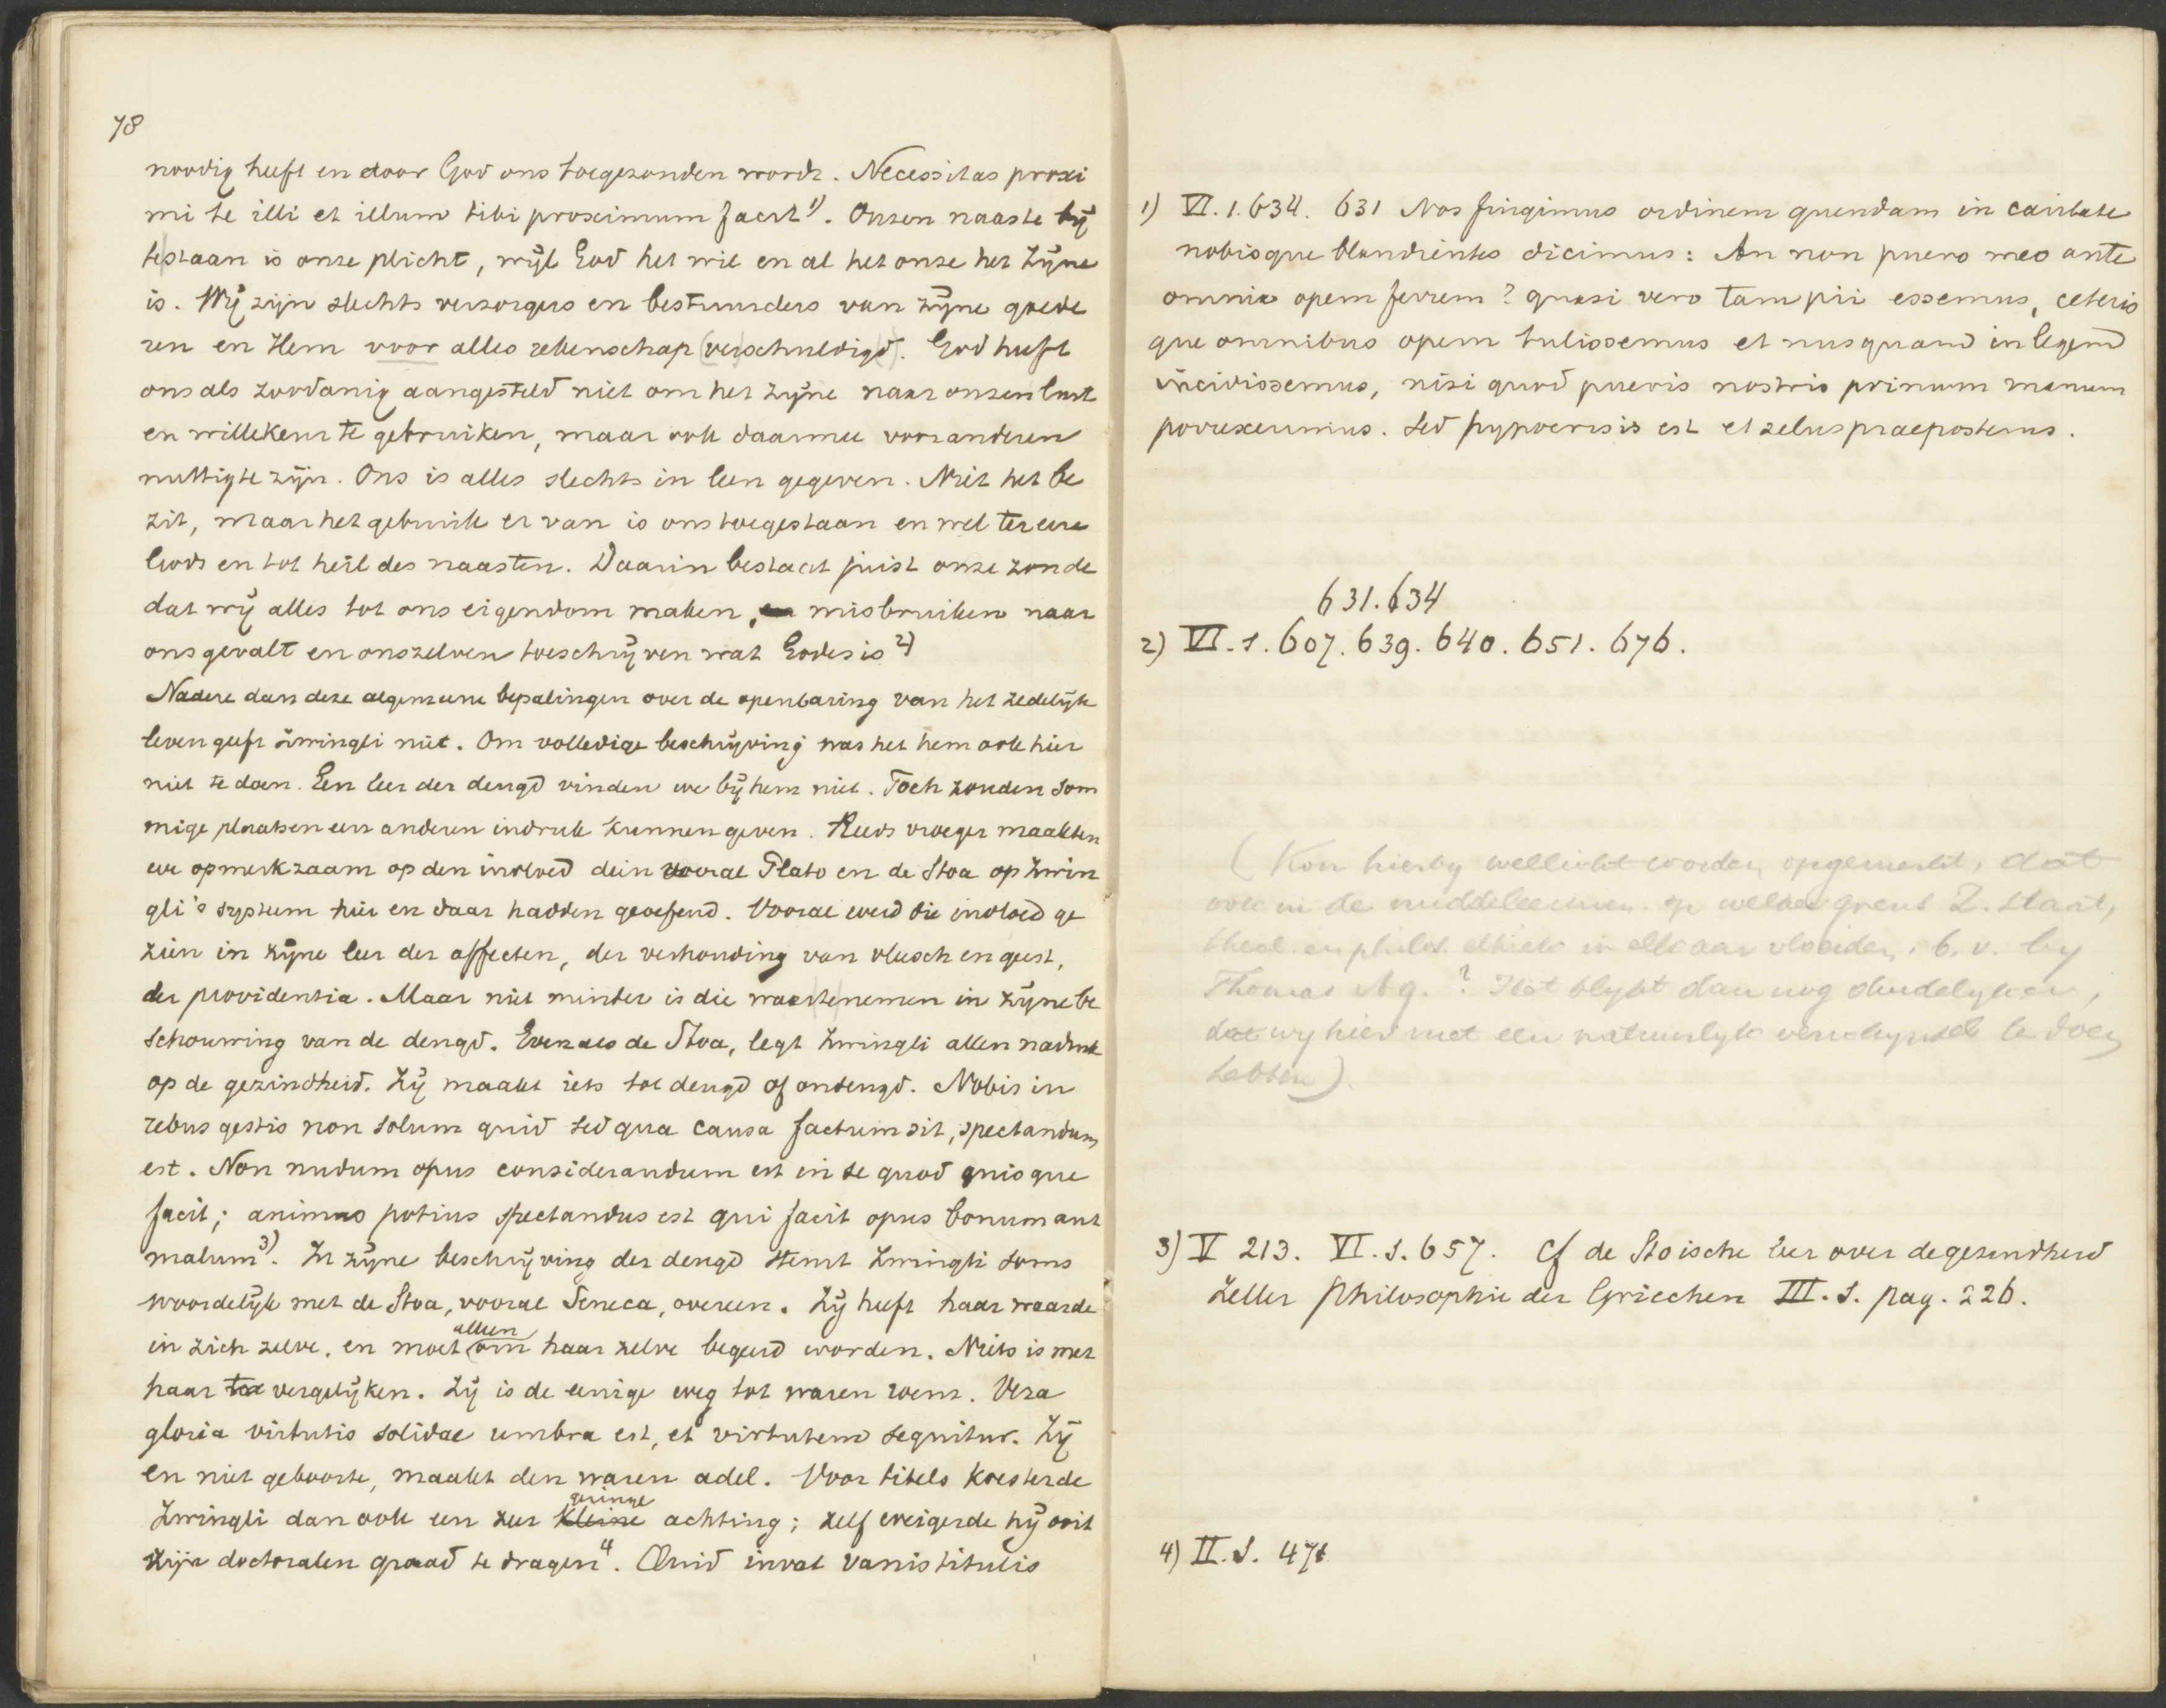 78
noodig heeft en door God ons toegezonden wordt. Necessitas proxi
mi te illi et illum tibi proximum facit 1). Onzen naaste bij
testaan is onze plicht, wijl God het wil en al het onze het Zijne
is. Wij zijn slechts verzorgers en bestuurders van Zijne goede
ren en Hem voor alles rekenschap (verschuldigd). God heeft
ons als zoodanig aangesteld niet om het zijne naar onzen lust
en willekeur te gebruiken, maar ook daarmee voor anderen
nuttig te zijn. Ons is alles slechts in leen gegeven. Niet het be
zit, maar het gebruik er van is ons toegestaan en wel ter eere
Gods en tot heil des naasten. Daarin bestaat juist onze zonde
dat wij alles tot ons eigendom maken, misbruiken naar
ons gevalt en onszelven toeschrijven wat Godes is 2)
Nadere dan deze algemeene bepalingen over de openbaring van het zedelijk
leven geeft Zwingli niet. Om volledige beschrijving was het hem ook hier
niet te doen. Een leer der deugd vinden we bij hem niet. Toch zouden som
mige plaatsen een anderen indruk kunnen geven. Reeds vroeger maakten
we opmerkzaam op den invloed dein vooral Plato en de Stoa op Zwin
gli's systeem hier en daar hadden geoefend. Vooral werd die invloed ge
zien in zijne leer der affecten, der verhouding van vleesch en geest,
der providentia. Maar niet minder is die waartenemen in zijne be
schouwing van de deugd. Evenals de Stoa, legt Zwingli allen nadruk
op de gezindheid. Zij maakt iets tot deugd of ondeugd. Nobis in
rebus gestis non solum quid sed qua causa factum sit, spectandum
est. Non nudum opus considerandum est in se quod quisque
facit; animus potius spectandus est qui facit opus bonum aut
malum 3). In zijne beschrijving der deugd stemt Zwingli soms
woordelijk met de Stoa, vooral Seneca, overeen. Zij heeft haar waarde
in zich zelve, en moet alleen om haar zelve begeerd worden. Niets is met
haar te vergelijken. Zij is de eenige weg tot waren roem. Vera
gloria virtutis solidae umbra est, et virtutem sequitur. Zij
en niet geboorte, maakt den waren adel. Voor titels koesterde
Zwingli dan ook een zeer kleine geringe achting; zelf weigerde hij ooit
zijn doctoralen graad te dragen 4. Quid iuvat vanis titulis
1) VI. 1. 634. 631 Nos fingimus ordinem quendam in caritate
nobisque blandientes dicimus: An non puero meo ante
omnia opem ferrem? quasi vero tam pii essemus, ceteris
que omnibus opem tulissemus et nusquam in legem
incidissemus, nisi quod pueris nostris primum manum
porreximus. Sed hypocrisis est et zelus praeposterus.
631. 634
2) VI. 1. 607. 639. 640. 651. 676.
(Kon hierby wellicht worden opgemerkt, dat
ook in de middeleeuwen op welker grens Z. staat,
theol. en philos. ethiek in elkaar vloeiden, b.v. by
Thomas Aq.? Het blykt dan nog duidelyker,
dat wy hier met een natuurlyk verschynsel te doen
hebben).
3) V 213. VI. 1. 657. Cf de Stoische leer over de gezindheid
Zeller Philosophie der Griechen III. 1. pag. 226.
4) II. 1. 471